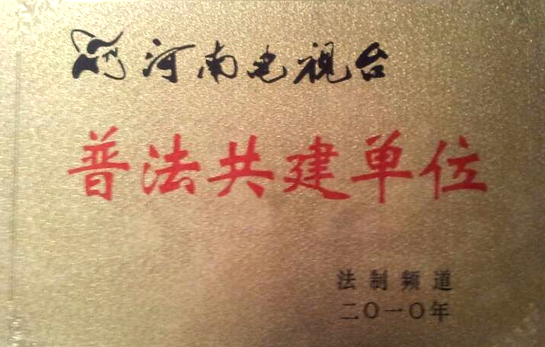 河南电视台
普法共建单位
法制频道
二〇一〇年